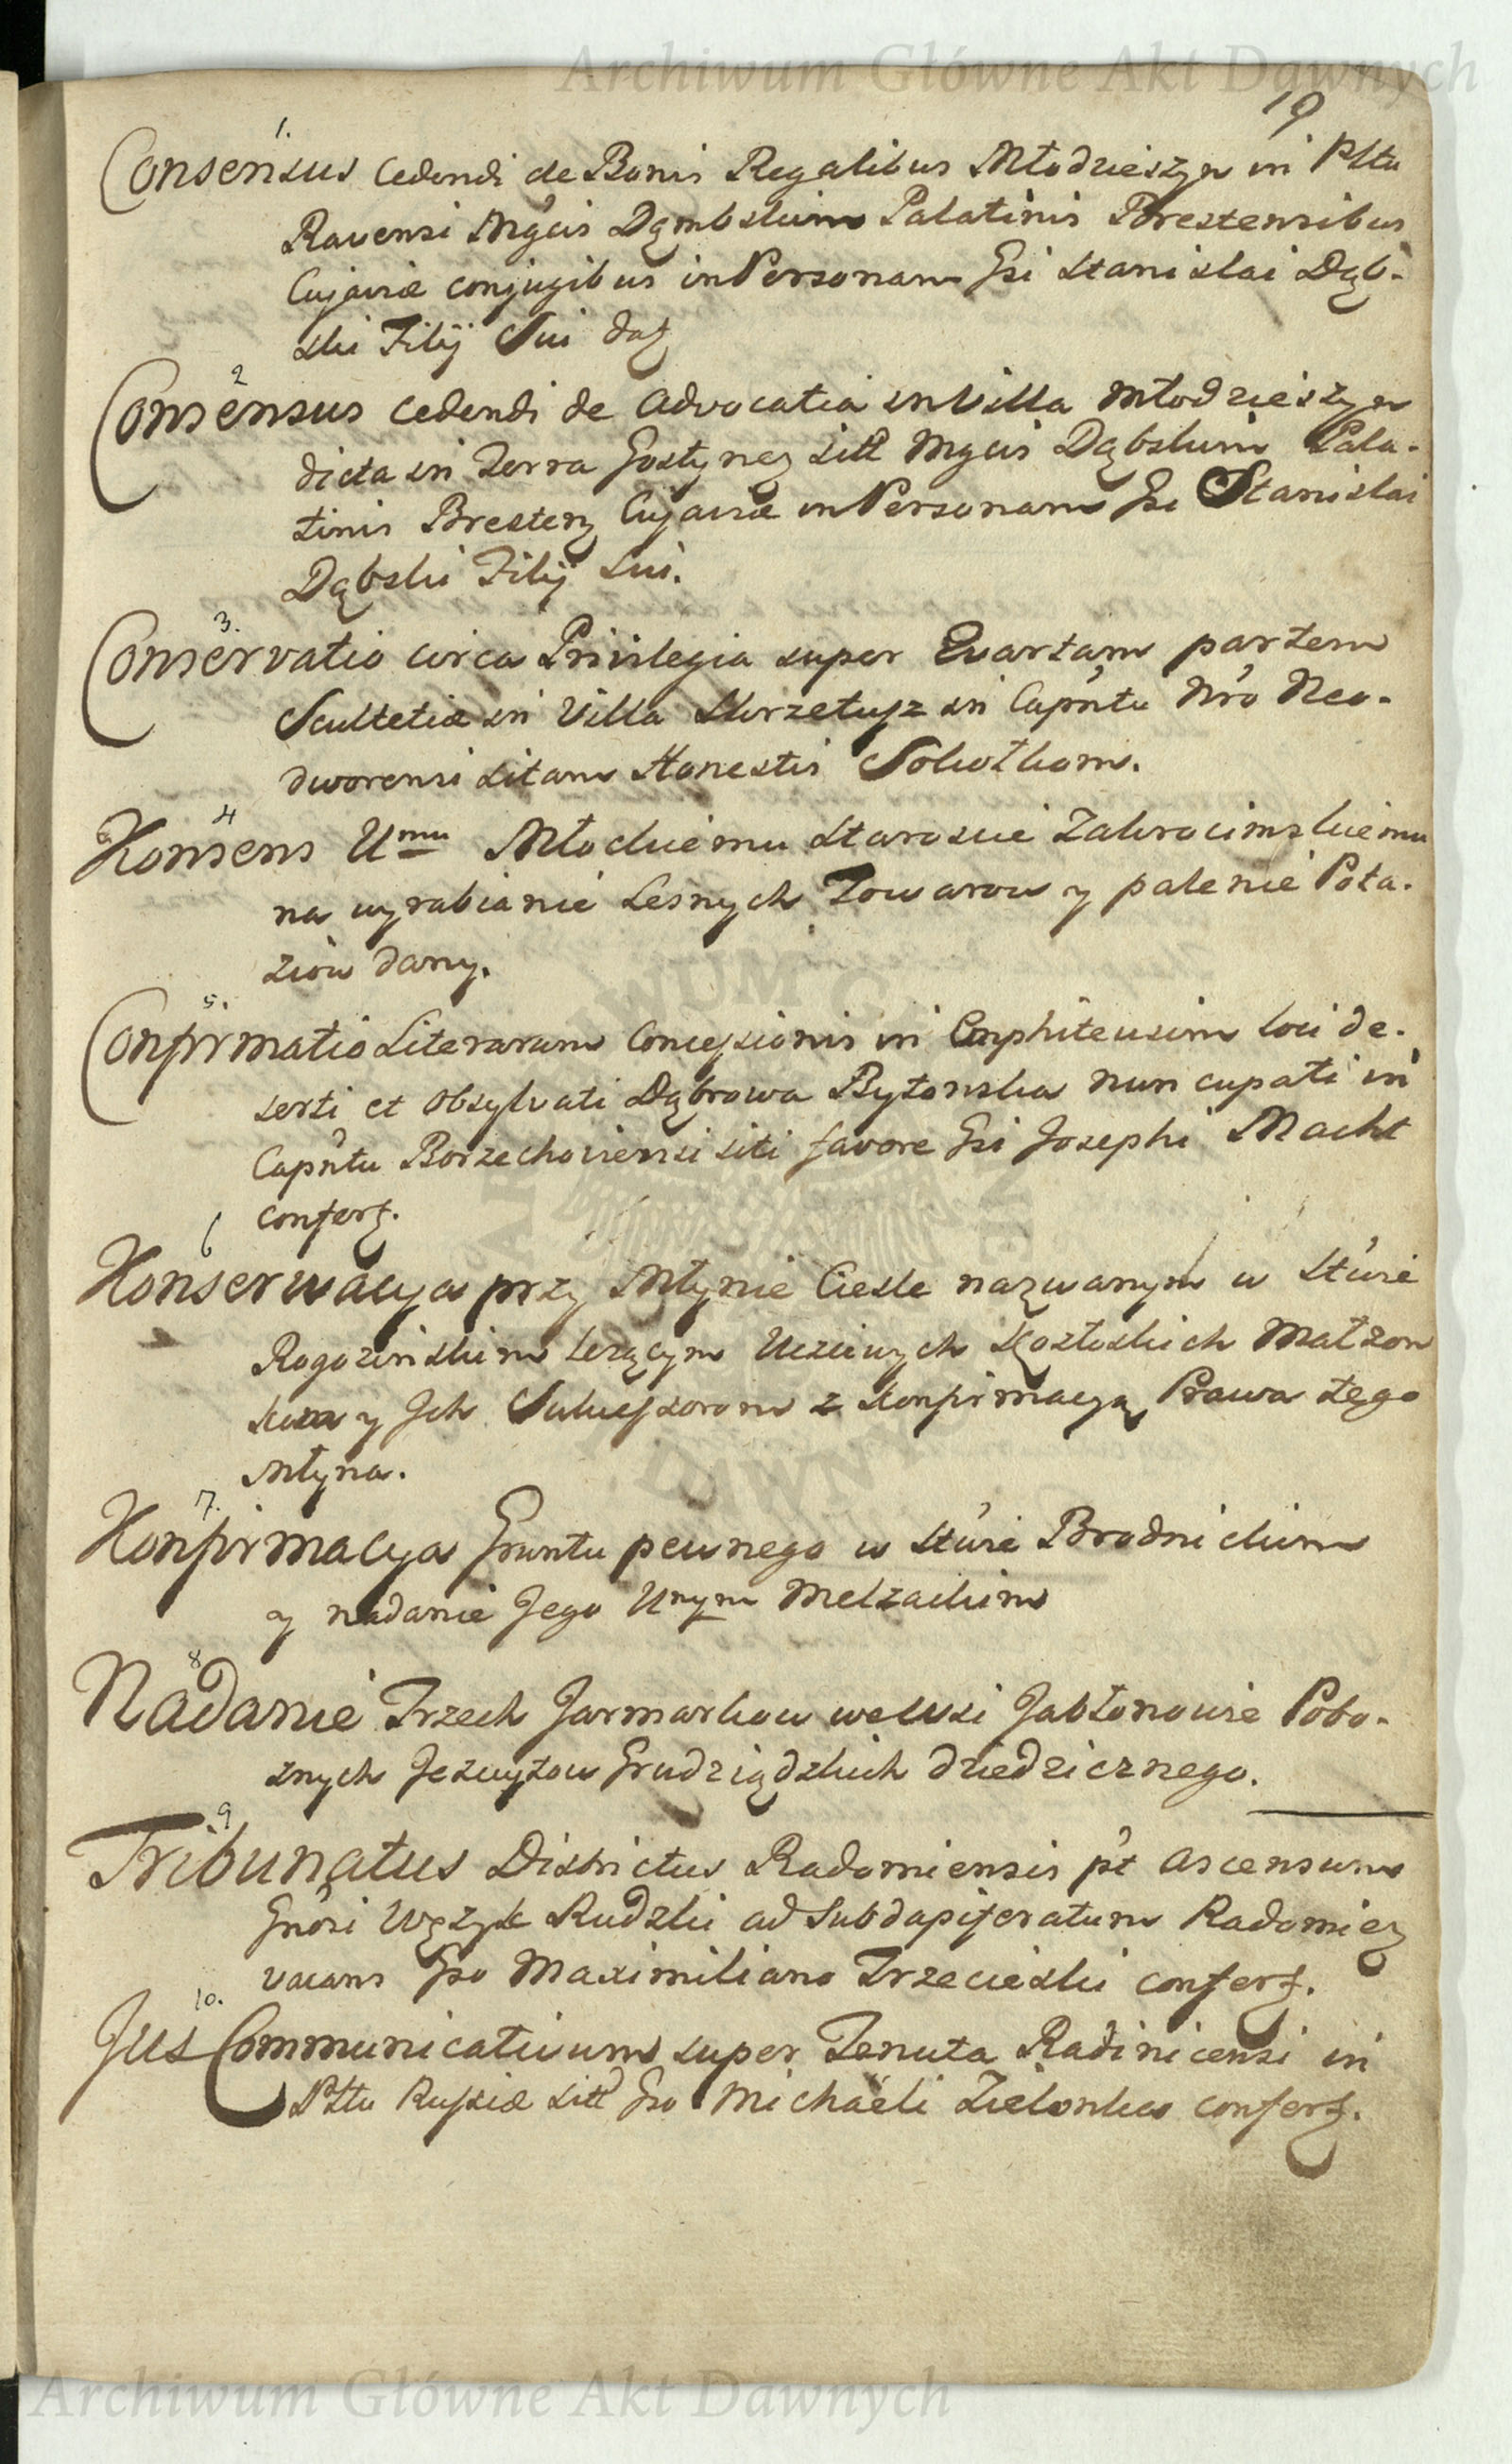 Archiwum Główne Akt Dawnych
19
1.
Consensus cedendi de Bonis Regalibus Młodzieszyn in Plttu
Ravensi Mgcis Dąmbskim Palatinis Brestensibus
Cujaviæ conjugibus in Personam Gsi Stanislai Dąb-
ski Filij Sui daŧ
2
Consensus cedendi de Advocatia in Villa Młodzieszyn
dicta in Terra Gostynen sitt Mgcis Dąbskim Pala-
tinis Bresten Cujaviæ in Personam Gsi Stanislai
Dąbski Filij Sui.
3.
Conservatio circa Privilegia super Quartam partem
Scultetiæ in Villa Skrzetusz in Capntu Nro Neo-
dworensi sitam Honestis Sobotkom.
4
Konsens Umu Młockiemu Staroscie Zakroczimskiemu
na wyrabianie Lesnych Towarow y palenie Pota-
ziow dany.
5.
Confirmatio Literarum Concessionis in Emphiteusim loci de-
serti et obsylvati Dąbrowa Bytonska nuncupati in
Capntu Borzechoviensi siti favore Gsi Josephi Macht
confert.
6
Konserwacya przy Młynie Ciesle nazwanym w Stwie
Rogozinskim lezącym Uczciwych Kozłoskich Małzon
kow y Jch Sukcessorom z Konfirmacyą Prawa tego
Młyna.
7.
Konfirmacya Gruntu pewnego w Stwie Brodnickim
y nadanie Jego Unym Melzackim
8
Nadanie Trzech Jarmarkow we Wsi Jabłonowie Pobo-
znych Jezuytow Grudziądzkich dziedzicznego.
9
Tribunatus Districtus Radomiensis pt ascensum
Gnosi Wężyk Rudzki ad Subdapiferatum Radomien
vacans Gso Maximiliano Trzecieski confert.
10.
Jus Communicativum super Tenuta Radinicensi in
Plttu Russiæ sitt Gso Michaëli Zielonka confert.
Archiwum Główne Akt Dawnych